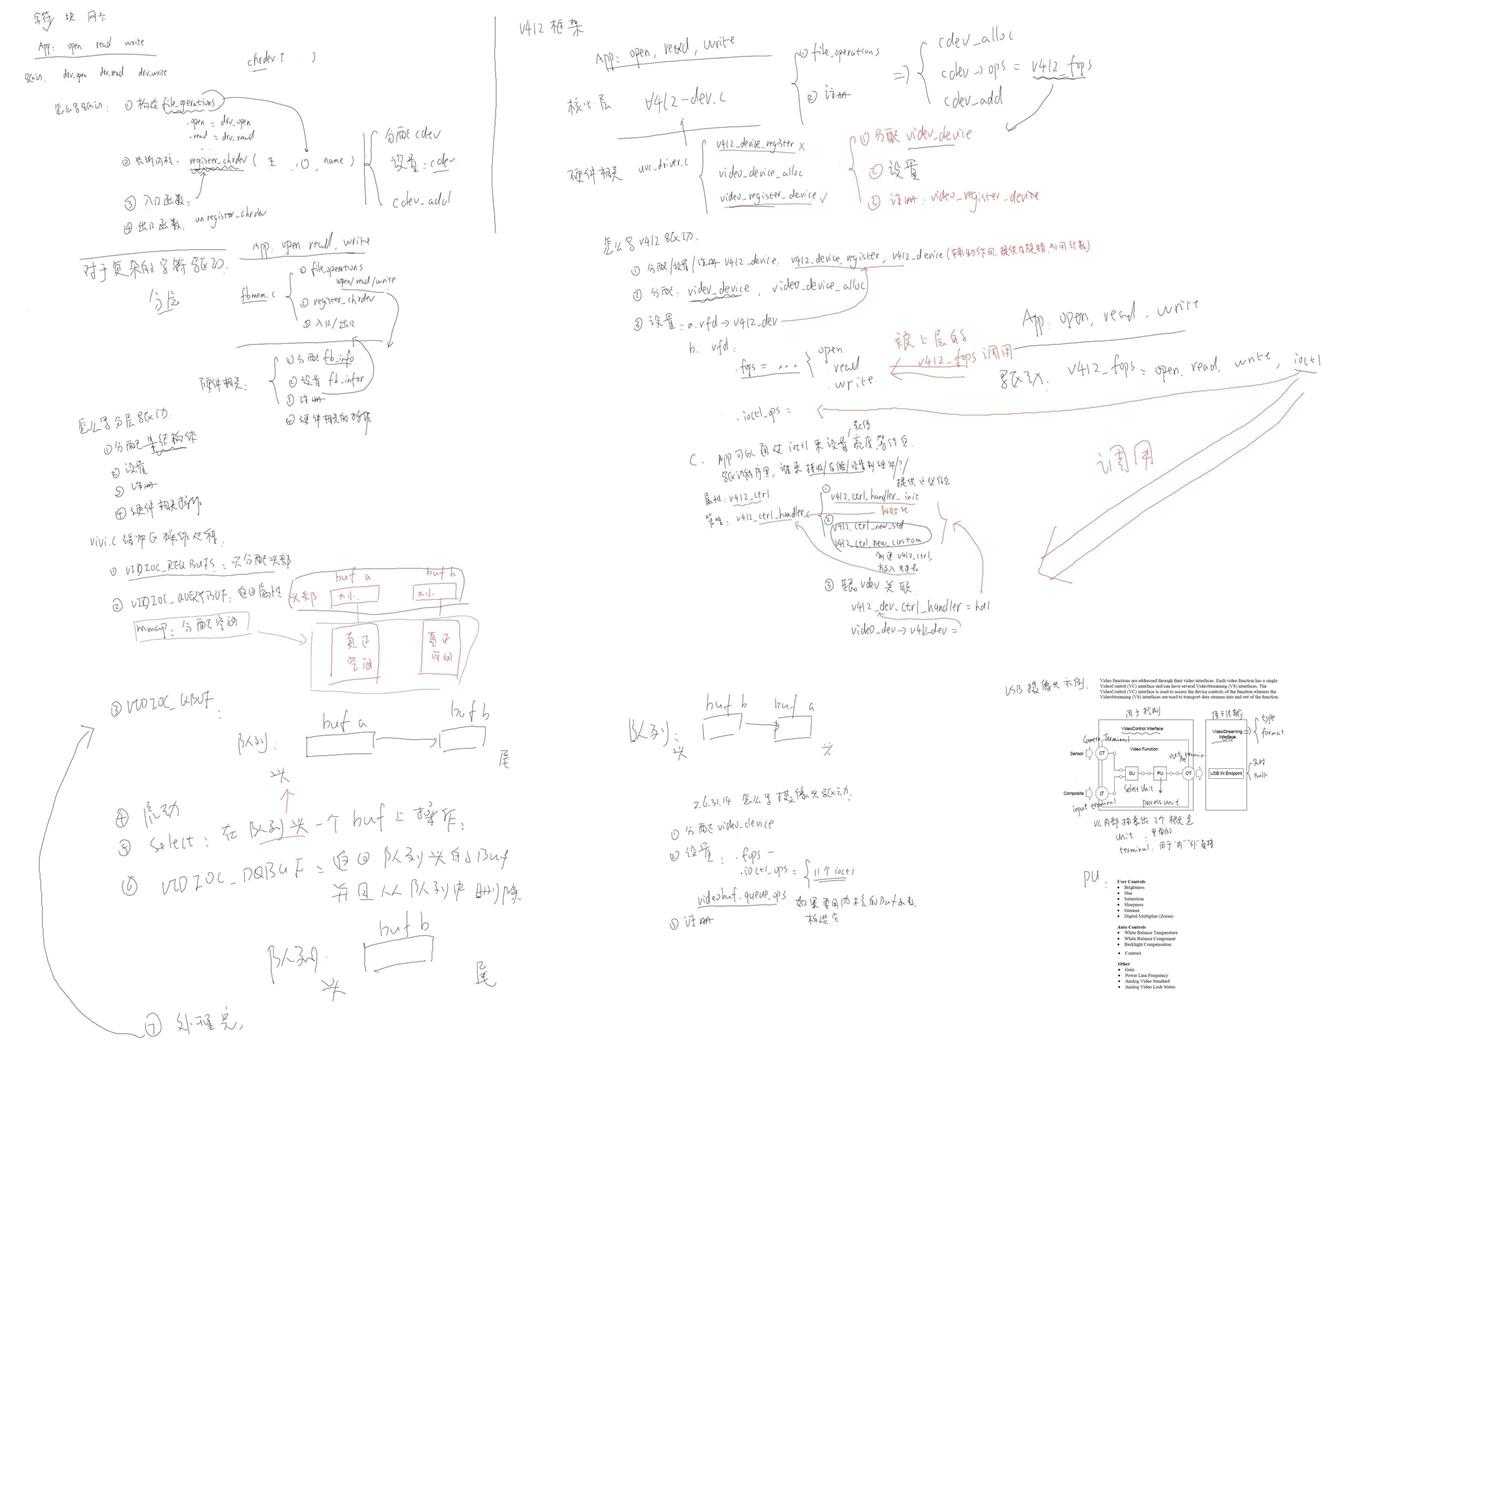 字符 块 网卡
App: open read write
驱动: drv_open drv_read drv_write
chrdev: ( )
怎么写驱动: ① 构造 file_operations
.open = drv_open
.read = drv_read
② 告诉内核: register_chrdev ( 主, , name )
分配 cdev
设置: cdev
cdev_add
③ 入口函数:
④ 出口函数: unregister_chrdev
对于复杂的字符驱动,
分层
App: open read, write
fbmem.c
① file_operations
open/read/write
② register_chrdev
③ 入口/出口
硬件相关:
① 分配 fb_info
② 设置 fb_info
③ 注册
④ 硬件相关的操作
怎么写分层驱动
① 分配某结构体
② 设置
③ 注册
④ 硬件相关操作
vivi.c 缓冲区操作过程:
① VIDIOC_REQBUFS:
② VIDIOC_QUERYBUF:
mmap: 分配空间
头部
buf a
大小
buf b
大小
真正
空间
真正
空间
③ VIDIOC_QBUF:
队列:
头
buf a
buf b
尾
④ 启动
⑤ select: 在队列头一个 buf 上操作:
⑥ VIDIOC_DQBUF: 返回队列头的 buf
并且从队列中删除
buf b
队列:
头
尾
⑦ 处理完,
V4l2 框架
App: open, read, write
核心层 v4l2-dev.c
① file_operations
② 注册
=>
cdev_alloc
cdev->ops = v4l2_fops
cdev_add
硬件相关 uvc_driver.c
v4l2_device_register x
video_device_alloc
video_register_device √
① 分配 video_device
② 设置
③ 注册: video_register_device
怎么写 v4l2 驱动:
① 分配/设置/注册 v4l2_device. v4l2_device_register, v4l2_device
② 分配: video_device, video_device_alloc
③ 设置: a. vfd->v4l2_dev
b. vfd:
.fops = ...
open
read
write
被上层的
v4l2_fops 调用
App: open, read, write
v4l2_fops = open, read, write, ioctl
.ioctl_ops =
调用
c. App可以通过 ioctl 来设置亮度等信息
属性: v4l2_ctrl
管理: v4l2_ctrl_handler
① v4l2_ctrl_handler_init
初始化
② v4l2_ctrl_new_std
v4l2_ctrl_new_custom
创建 v4l2_ctrl,
放入链表
③ 跟 vdev 关联
v4l2_dev.ctrl_handler = hdl
video_dev->v4l2_dev =
队列:
头
buf b
buf a
2.6.31.14 怎么写摄像头驱动:
① 分配 video_device
② 设置: .fops =
.ioctl_ops = 11个 ioctl
videobuf_queue_ops
③ 注册
USB 摄像头示例:
Video functions are addressed through their video interfaces. Each video function has a single
VideoControl (VC) interface and can have several VideoStreaming (VS) interfaces. The
VideoControl (VC) interface is used to access the device controls of the function whereas the
VideoStreaming (VS) interfaces are used to transport data streams into and out of the function.
用于控制
VideoControl Interface
Camera Terminal
Video Function
Sensor
CT
SU
PU
OT
Select Unit
process unit
Composite
IT
input terminal
VideoStreaming
Interface
format
USB IN Endpoint
实时
Bulk
unit
terminal:
PU:
User Controls
• Brightness
• Hue
• Saturation
• Sharpness
• Gamma
• Digital Multiplier (Zoom)
Auto Controls
• White Balance Temperature
• White Balance Component
• Backlight Compensation
• Contrast
Other
• Gain
• Power Line Frequency
• Analog Video Standard
• Analog Video Lock Status